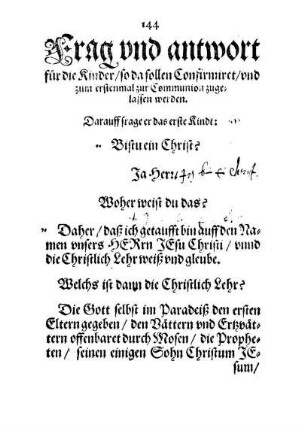 144
Frag vnd antwort
für die Kinder/ so da sollen Confirmiret/ vnd
zum erstenmal zur Communion zuge-
lassen werden.
Darauff frage er das erste Kindt:
Bistu ein Christ?
Ja Herr/
Woher weist du das?
Daher/ daß ich getaufft bin auff den Na-
men vnsers HERrn JEsu Christi/ vnnd
die Christlich Lehr weiß vnd gleube.
Welchs ist dann die Christlich Lehr?
Die Gott selbst im Paradeiß den ersten
Eltern gegeben/ den Vättern vnd Ertzvät-
tern offenbaret durch Mosen/ die Prophe-
ten/ seinen einigen Sohn Christum JE-
sum/